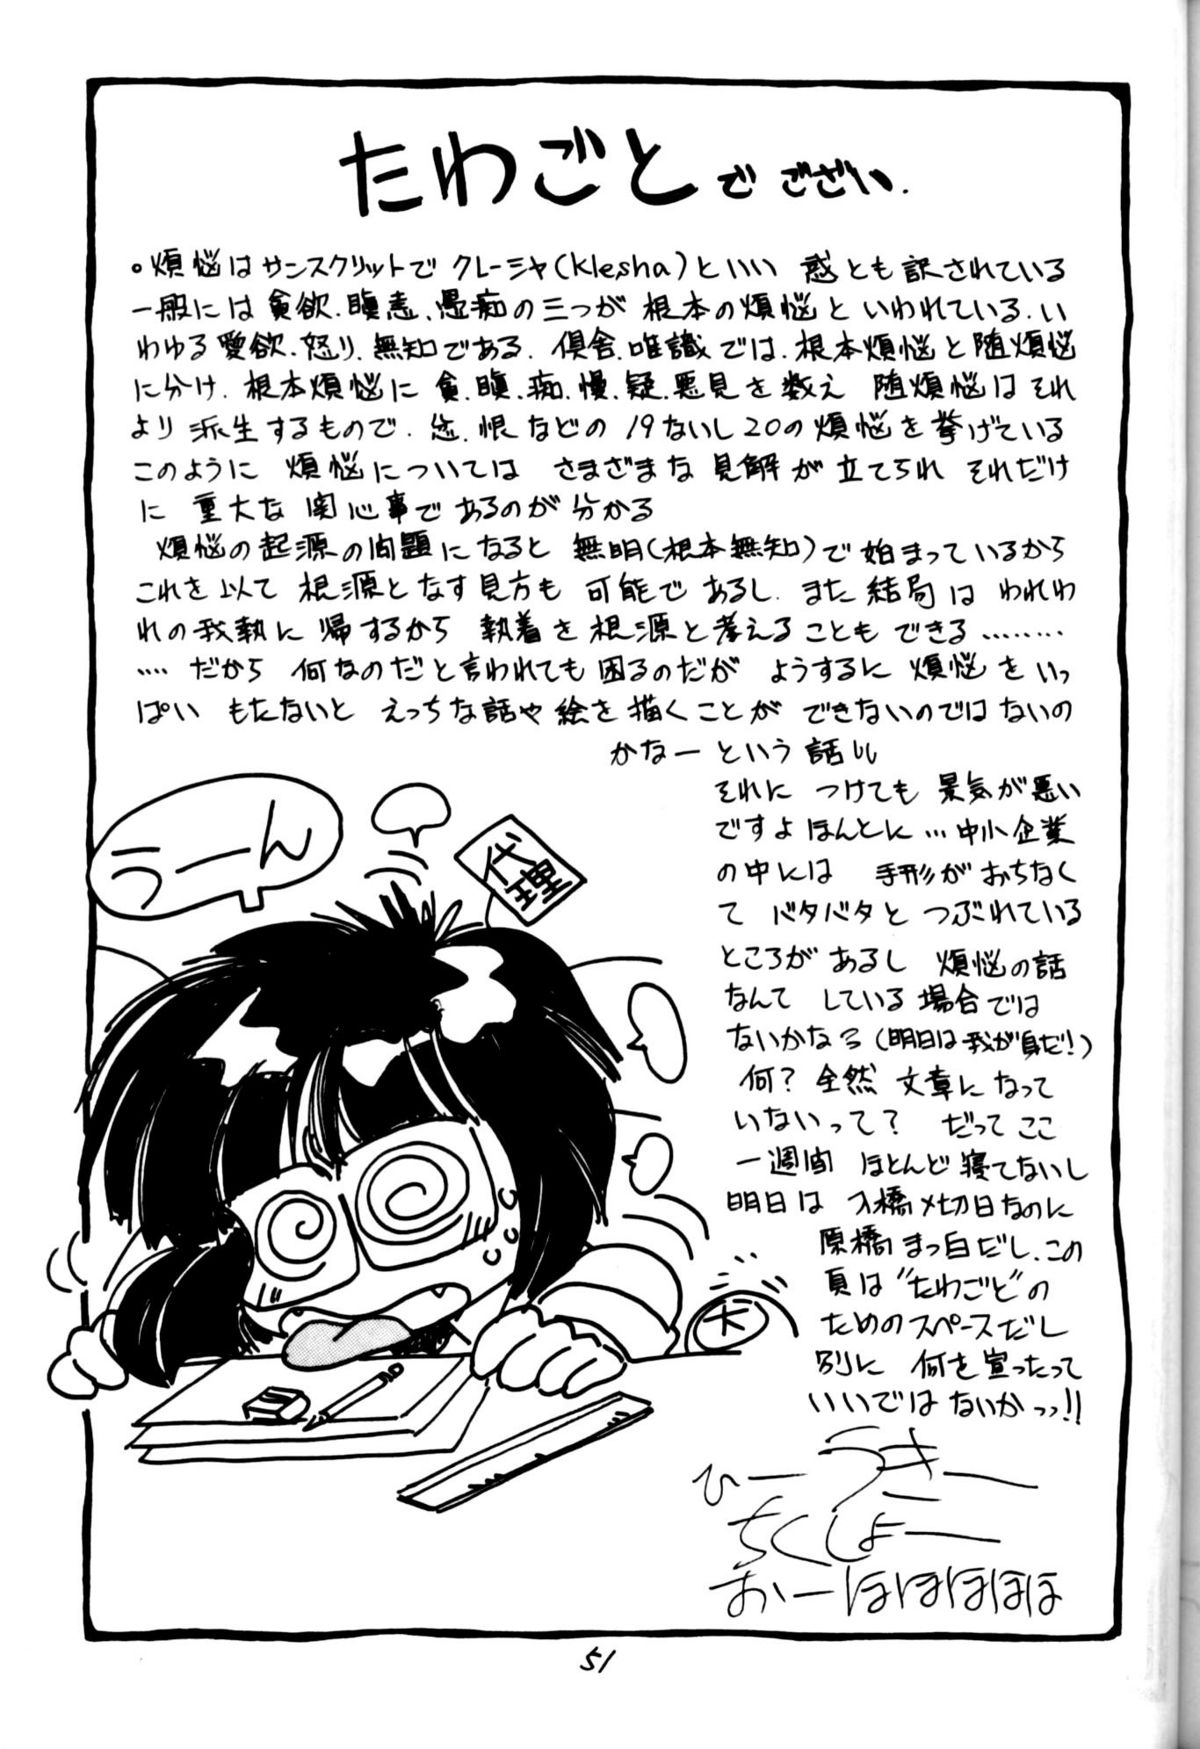 たわごとでござい.
。煩悩はサンスクリットでクレーシャ(Klesha)といい 惑とも訳されている
一般には貪欲.瞋恚.愚痴の三つが根本の煩悩といわれている.い
わゆる愛欲.怒り.無知である.倶舎.唯識では.根本煩悩と随煩悩
に分け.根本煩悩に 貪.瞋.痴.慢.疑.悪見を数え 随煩悩はそれ
より派生するもので. 忿.恨などの19ないし20の煩悩を挙げている
このように 煩悩については さまざまな見解が立てられ それだけ
に 重大な関心事であるのが分かる
煩悩の起源の問題になると 無明(根本無知)で始まっているから
これを以て 根源となす見方も 可能であるし.また結局は われわ
れの我執に 帰するから 執着を根源と考えることもできる………
…‥だから 何なのだと言われても困るのだが ようするに 煩悩をいっ
ぱい もたないと えっちな話や絵を描くことが できないのではないの
かなー という 話し
それに つけても 景気が悪い
ですよ ほんとに…中小企業
の中には 手形がおちなく
て バタバタと つぶれている
ところがあるし 煩悩の話
なんて している場合では
ないかなろ(明日は我が身だ!)
何? 全然 文章になって
いないって? だって ここ
一週間 ほとんど寝てないし
明日は 入橋〆切日なのに
原橋まっ白だし.この
頁は"たわごと"の
ためのスペースだし
別に 何を宣ったって
いいではないかっっ!!
うーん
代理
大
ひー うきー
ちくしょー
おーほほほほほ
51